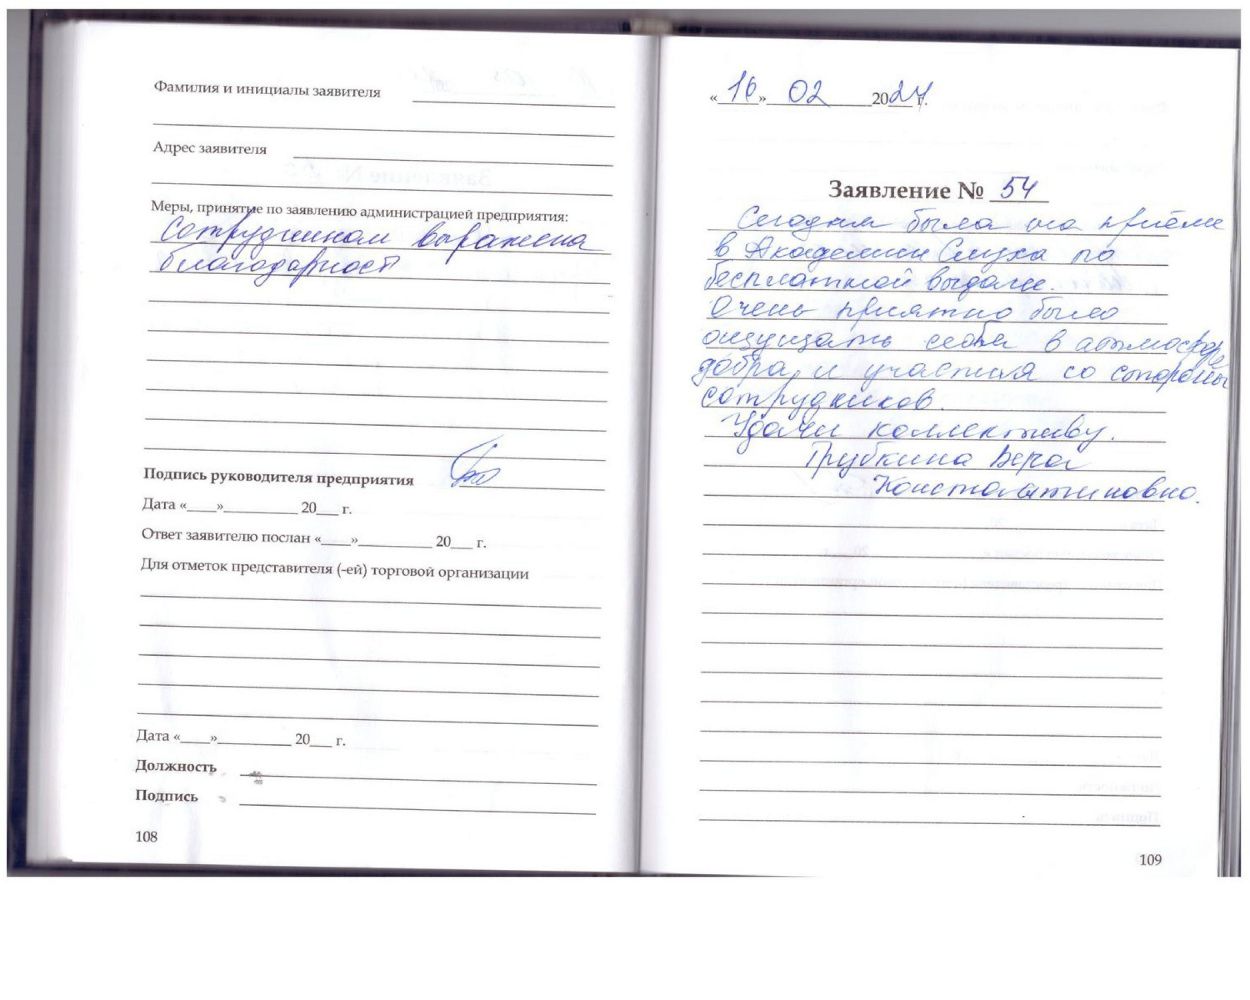 Фамилия и инициалы заявителя
Адрес заявителя
Меры, принятые по заявлению администрацией предприятия:
Сотрудникам выражена
благодарност
Подпись руководителя предприятия
Дата «____»__________ 20___ г.
Ответ заявителю послан «____»__________ 20___ г.
Для отметок представителя (-ей) торговой организации
Дата «____»__________ 20___ г.
Должность
Подпись
108
«16» 02 2024 г.
Заявление № 54
Сегодня была на приёме
в Академии Слуха по
бесплатной выдаче.
Очень приятно было
ощущать себя в атмосфере
добра и участия со стороны
сотрудников.
Удачи коллективу.
Трубкина Вера
Константиновна.
109